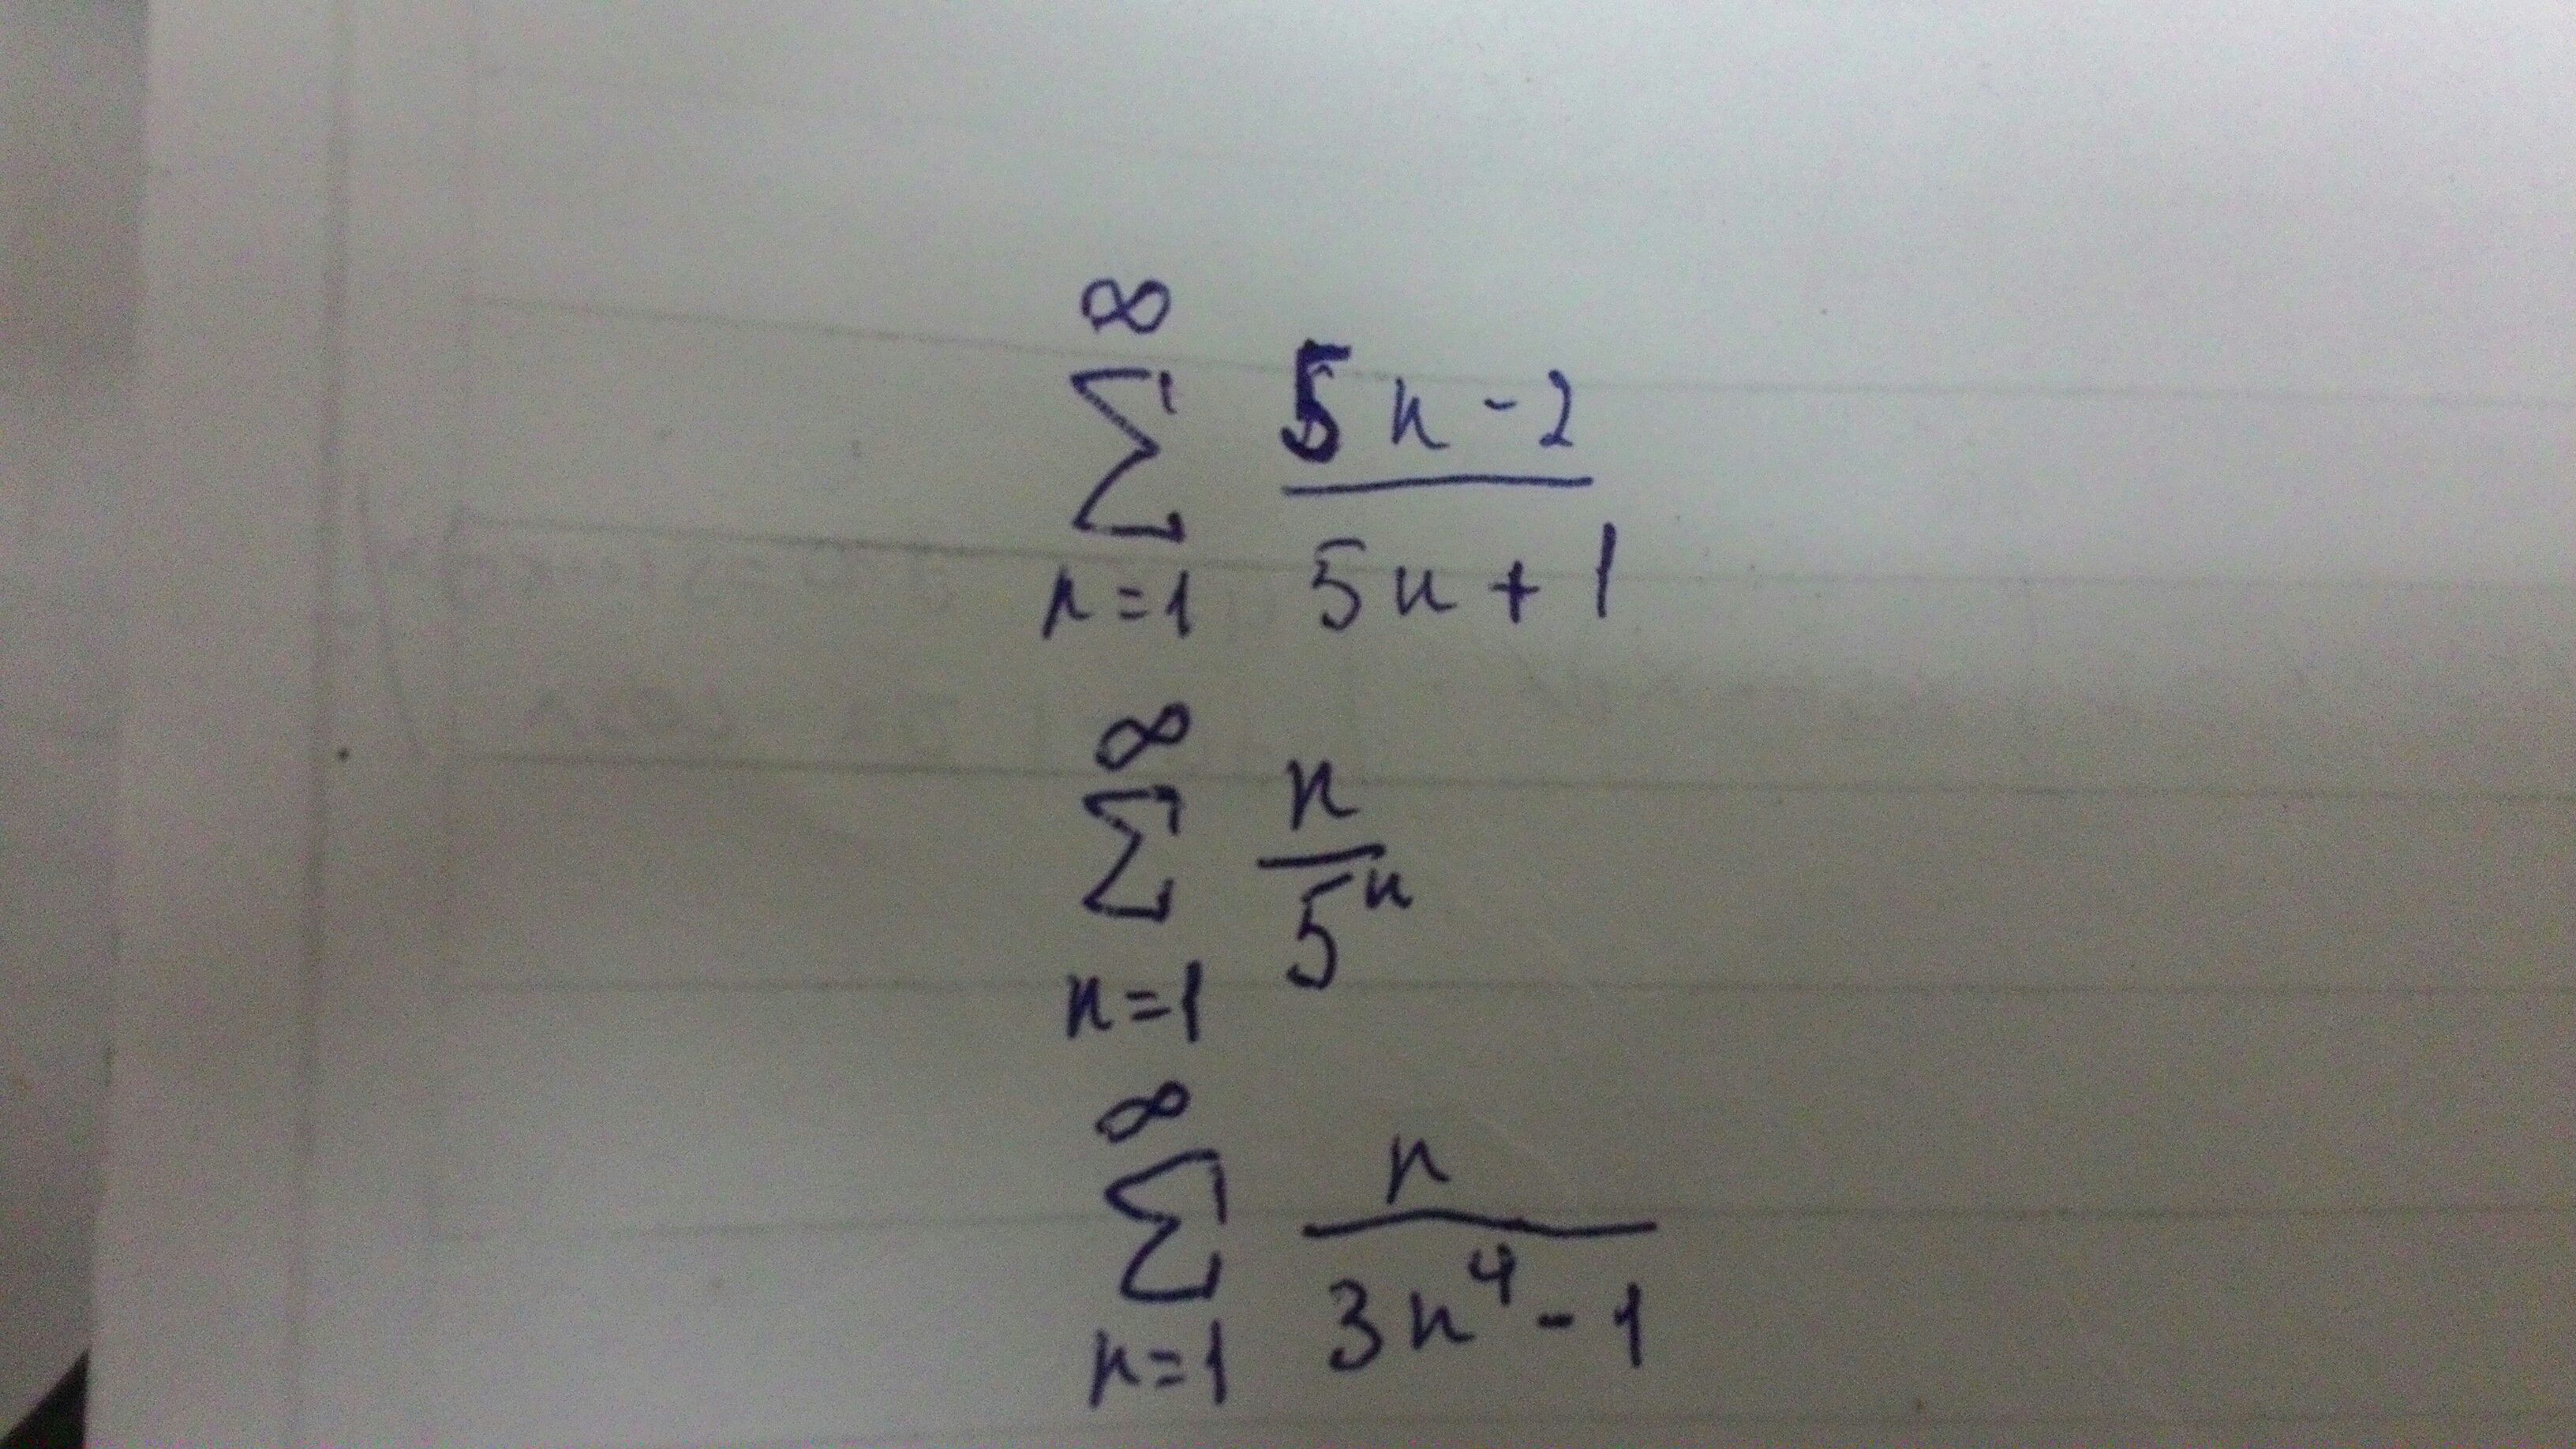 ∞
∑ (5n-2)/(5n+1)
n=1
∞
∑ n/5ⁿ
n=1
∞
∑ n/(3n⁴-1)
n=1